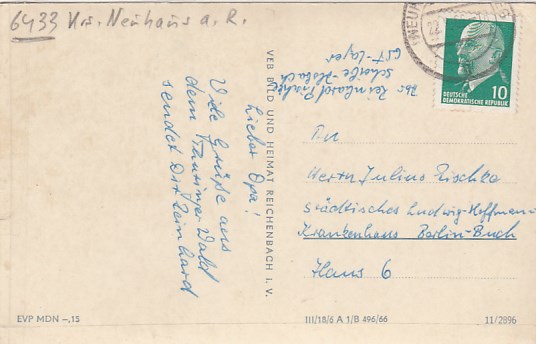 6433 Krs. Neuhaus a. R.
Lieber Opa!
Viele Grüße aus
dem Thüringer Wald
sendet Dir Reinhard
VEB BILD UND HEIMAT REICHENBACH i. V.
Abs. Reinhard
GST-Lager
10
DEUTSCHE
DEMOKRATISCHE REPUBLIK
An
Herrn Julius Zischke
Städtisches Ludwig-Hoffmann-
Krankenhaus Berlin-Buch
Haus 6
EVP MDN -,15
III/18/6 A 1/B 496/66
11/2896